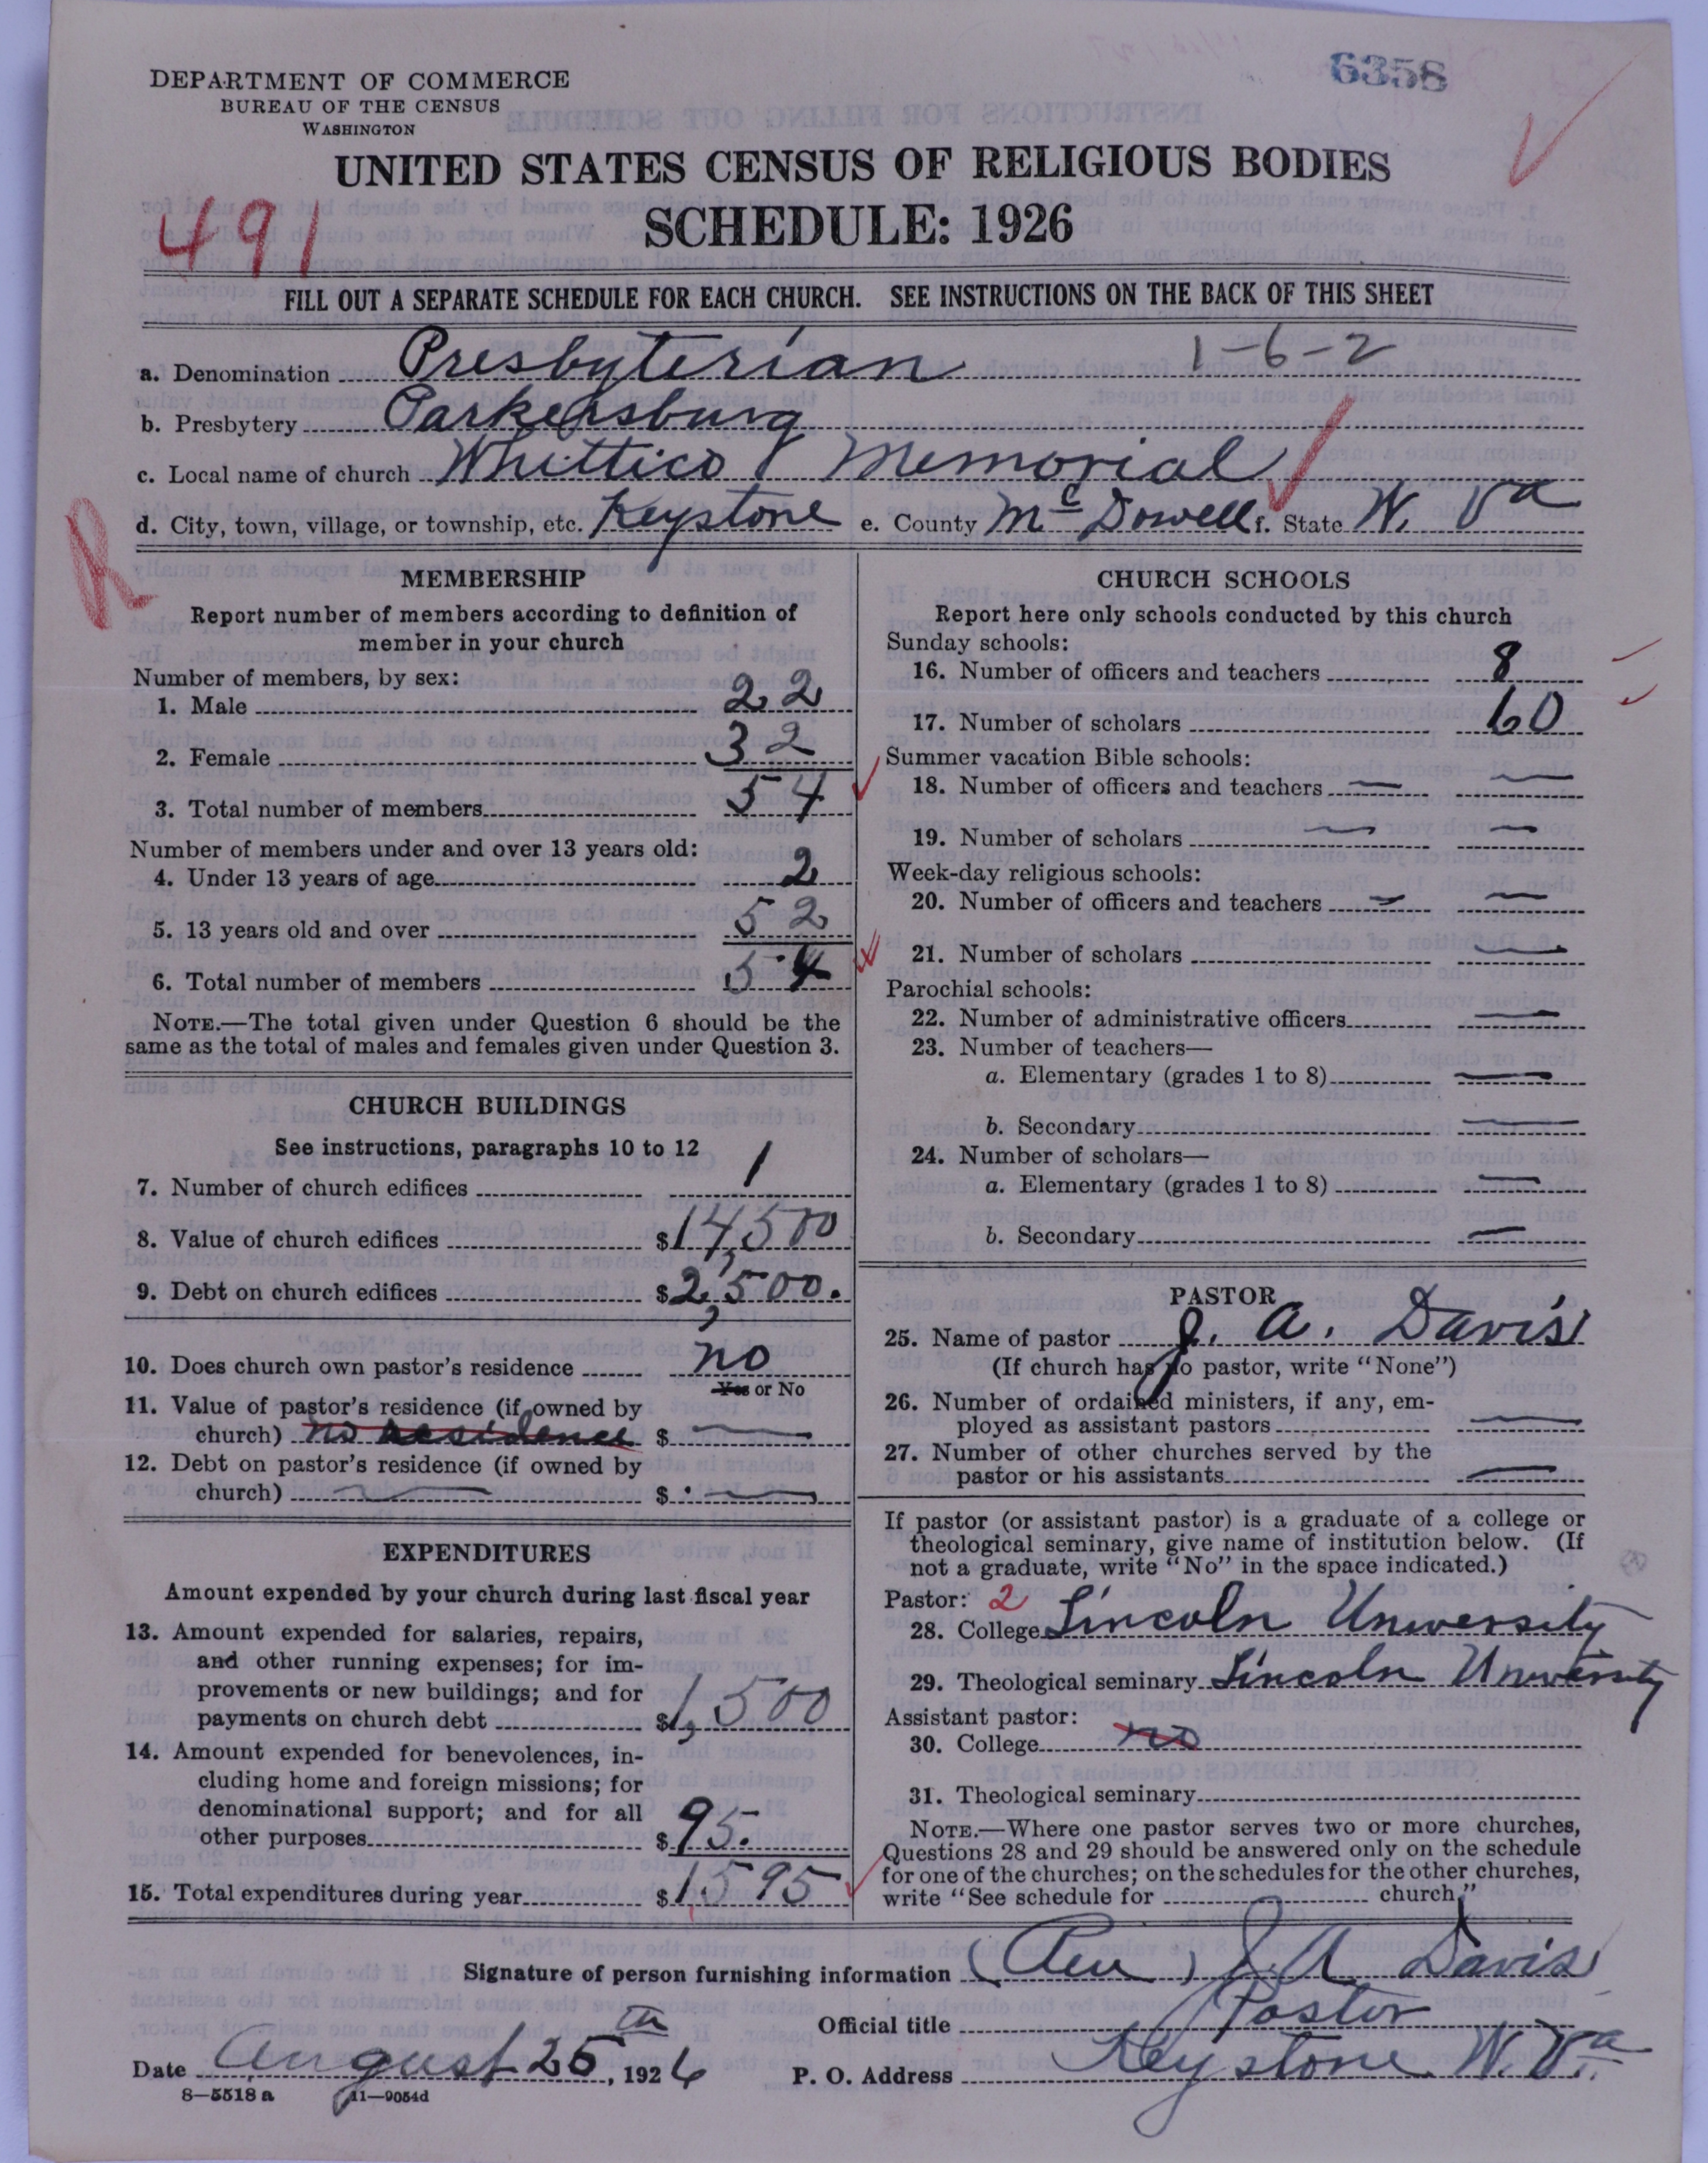 6358
DEPARTMENT OF COMMERCE
BUREAU OF THE CENSUS
WASHINGTON
UNITED STATES CENSUS OF RELIGIOUS BODIES
491
SCHEDULE: 1926
FILL OUT A SEPARATE SCHEDULE FOR EACH CHURCH. SEE INSTRUCTIONS ON THE BACK OF THIS SHEET
a. Denomination Presbyterian 1-6-2
b. Presbytery Parkersburg
c. Local name of church Whittico Memorial
d. City, town, village, or township, etc. Keystone e. County McDowell f. State W. Va
R
MEMBERSHIP
Report number of members according to definition of
member in your church
Number of members, by sex:
1. Male 22
2. Female 32
3. Total number of members 54
Number of members under and over 13 years old:
4. Under 13 years of age 2
5. 13 years old and over 52
6. Total number of members 54
NOTE.—The total given under Question 6 should be the
same as the total of males and females given under Question 3.
CHURCH BUILDINGS
See instructions, paragraphs 10 to 12
7. Number of church edifices 1
8. Value of church edifices $14,500
9. Debt on church edifices $2,500.
10. Does church own pastor's residence no
Yes or No
11. Value of pastor's residence (if owned by
church) no residence $ —
12. Debt on pastor's residence (if owned by
church) — $ —
EXPENDITURES
Amount expended by your church during last fiscal year
13. Amount expended for salaries, repairs,
and other running expenses; for im-
provements or new buildings; and for
payments on church debt $1,500
14. Amount expended for benevolences, in-
cluding home and foreign missions; for
denominational support; and for all
other purposes $95.
15. Total expenditures during year $1595
CHURCH SCHOOLS
Report here only schools conducted by this church
Sunday schools:
16. Number of officers and teachers 8
17. Number of scholars 60
Summer vacation Bible schools:
18. Number of officers and teachers — —
19. Number of scholars — —
Week-day religious schools:
20. Number of officers and teachers — —
21. Number of scholars —
Parochial schools:
22. Number of administrative officers —
23. Number of teachers—
a. Elementary (grades 1 to 8) —
b. Secondary —
24. Number of scholars—
a. Elementary (grades 1 to 8) —
b. Secondary —
PASTOR
25. Name of pastor J. A. Davis
(If church has no pastor, write "None")
26. Number of ordained ministers, if any, em-
ployed as assistant pastors —
27. Number of other churches served by the
pastor or his assistants —
If pastor (or assistant pastor) is a graduate of a college or
theological seminary, give name of institution below. (If
not a graduate, write "No" in the space indicated.)
Pastor: 2
28. College Lincoln University
29. Theological seminary Lincoln University
Assistant pastor:
30. College no
31. Theological seminary
NOTE.—Where one pastor serves two or more churches,
Questions 28 and 29 should be answered only on the schedule
for one of the churches; on the schedules for the other churches,
write "See schedule for church."
Signature of person furnishing information (Rev) J. A. Davis
Official title Pastor
Date August 25th, 1926 P. O. Address Keystone W. Va.
8—5518 a 11—9054d